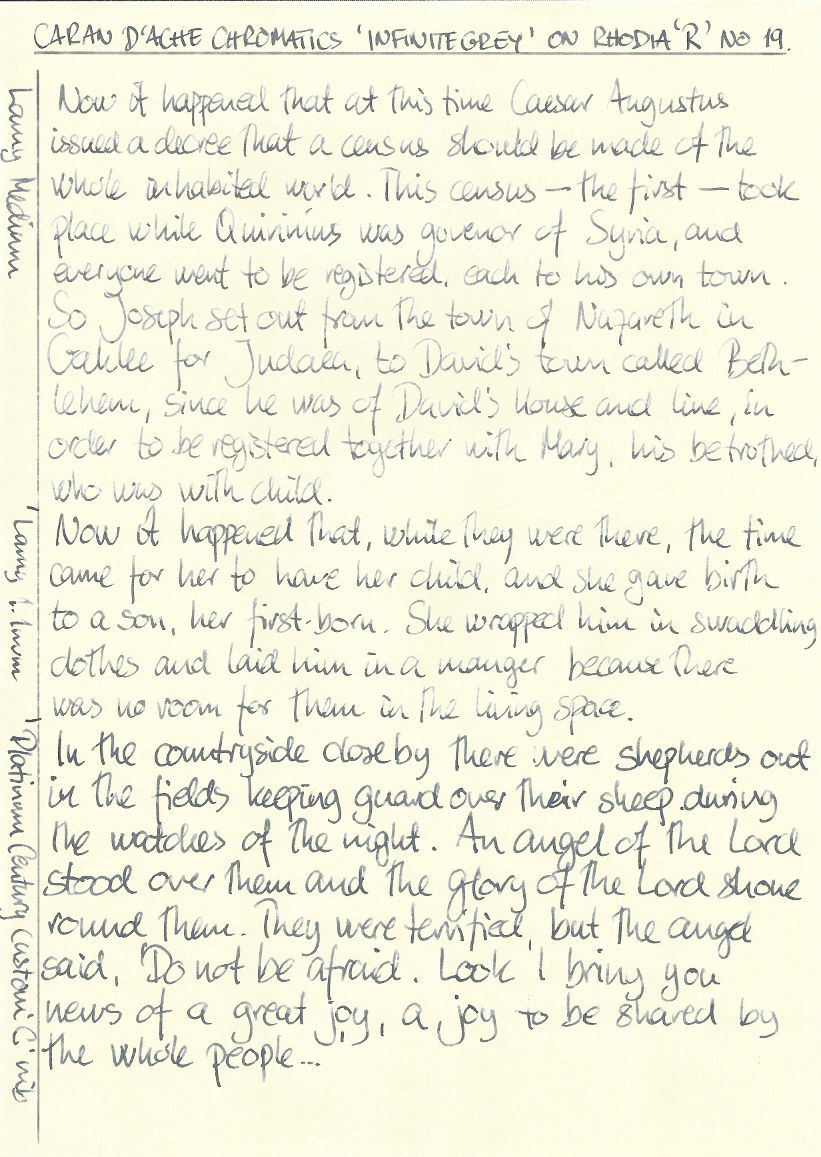 CARAN D'ACHE CHROMATICS 'INFINITE GREY' ON RHODIA 'R' No 19.
Lamy Medium
Now it happened that at this time Caesar Augustus
issued a decree that a census should be made of the
whole inhabited world. This census — the first — took
place while Quirinius was govenor of Syria, and
everyone went to be registered, each to his own town.
So Joseph set out from the town of Nazareth in
Galilee for Judaea, to David's town called Beth-
lehem, since he was of David's House and line, in
order to be registered together with Mary, his betrothed,
who was with child.
'Lamy 1.1mm
Now it happened that, while they were there, the time
came for her to have her child, and she gave birth
to a son, her first-born. She wrapped him in swaddling
clothes and laid him in a manger because there
was no room for them in the living space.
'Platinum Century custom 'C' nib
In the countryside close by there were shepherds out
in the fields keeping guard over their sheep during
the watches of the night. An angel of the Lord
stood over them and the glory of the Lord shone
round them. They were terrified, but the angel
said, 'Do not be afraid. Look I bring you
news of a great joy, a joy to be shared by
the whole people...